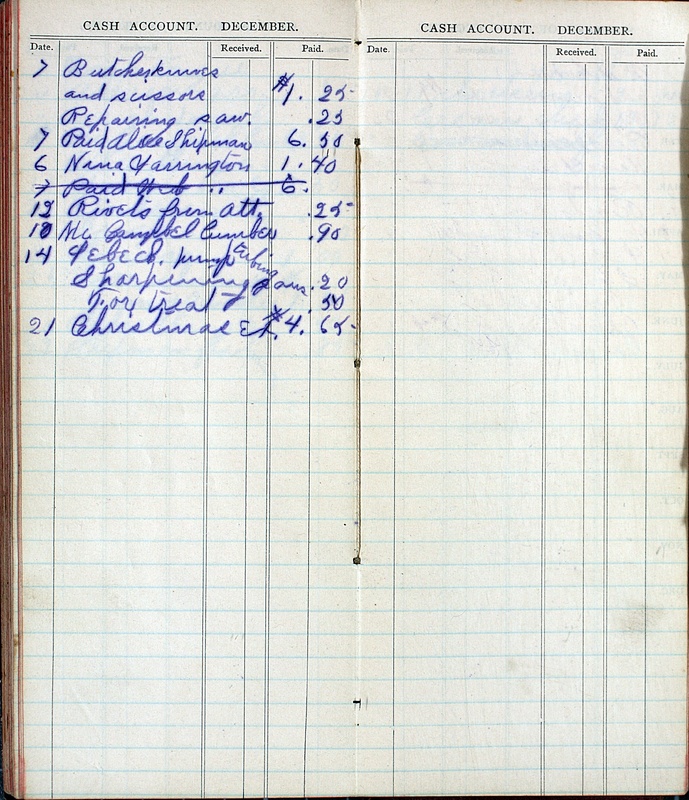 CASH ACCOUNT. DECEMBER.
Date. Received. Paid.
7 Butcherknives
and scissors $1. 25
Repairing saw. .25
7 Paid Alice Shipman 6. 50
6 Nina Yarrington 1. 40
7 Paid 6.
12 Rivets from Att. .25
10 Mc Campbel Lumber .90
14 pump tubing
Sharpening saw. .20
For treat .50
21 Christmas $4. 65
CASH ACCOUNT. DECEMBER.
Date. Received. Paid.